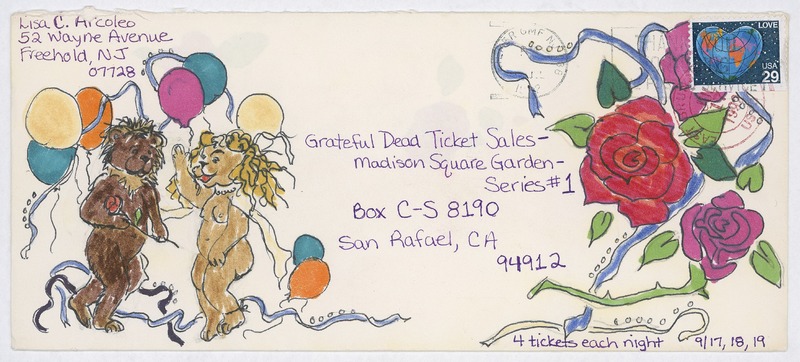 Lisa C. Arcoleo
52 Wayne Avenue
Freehold, NJ
07728
LOVE
USA
29
Grateful Dead Ticket Sales-
Madison Square Garden-
Series #1
Box C-S 8190
San Rafael, CA
94912
4 tickets each night 9/17, 18, 19